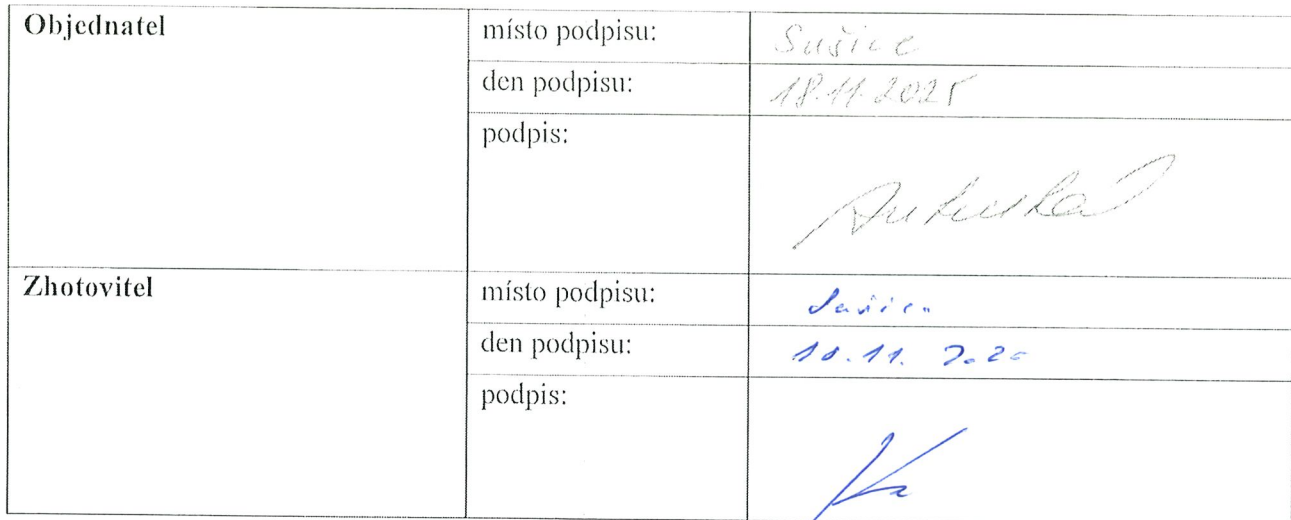 Objednatel
místo podpisu: Sušice
den podpisu: 18.11.2025
podpis:
Zhotovitel
místo podpisu: Sušice
den podpisu:
podpis: